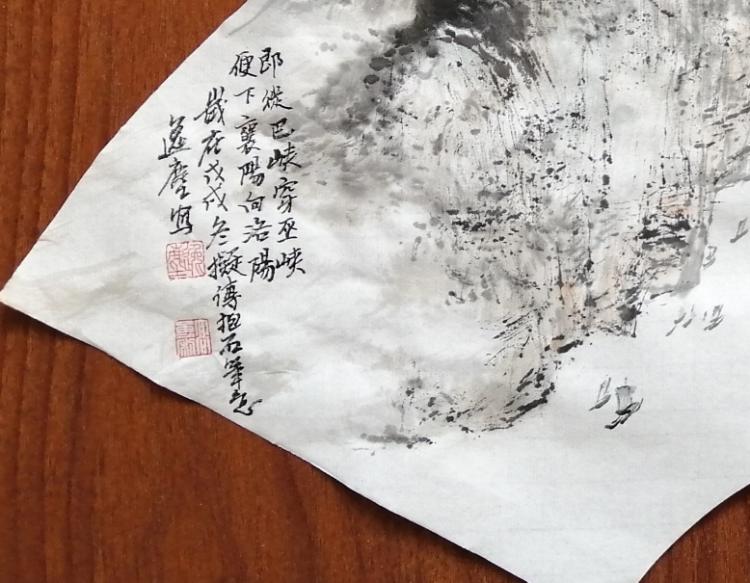 即從巴峽穿巫峽
便下襄陽向洛陽
歲在戊戌冬擬傅抱石筆意
逸塵寫